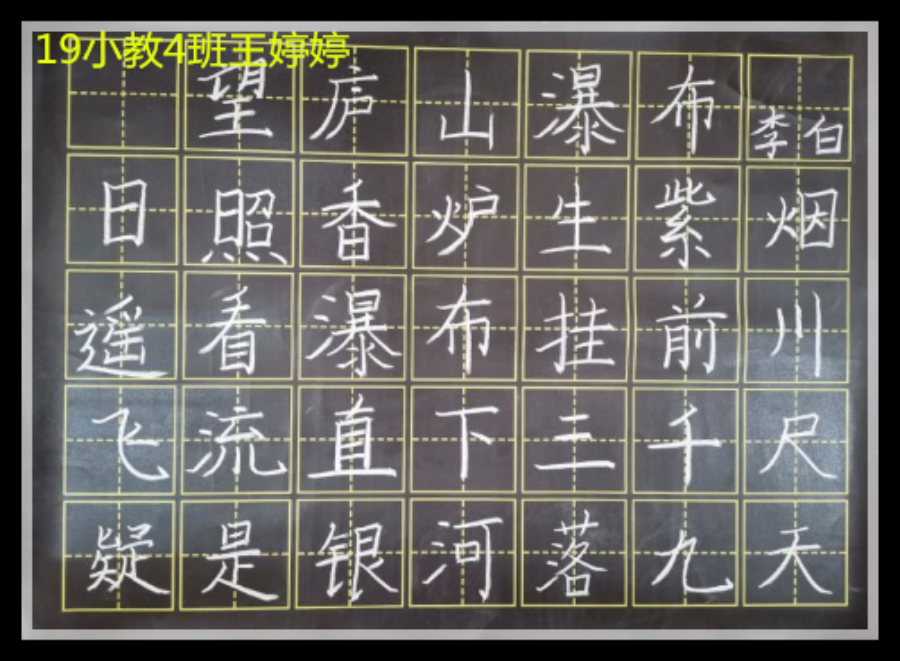 19小教4班王婷婷
望庐山瀑布 李白
日照香炉生紫烟
遥看瀑布挂前川
飞流直下三千尺
疑是银河落九天